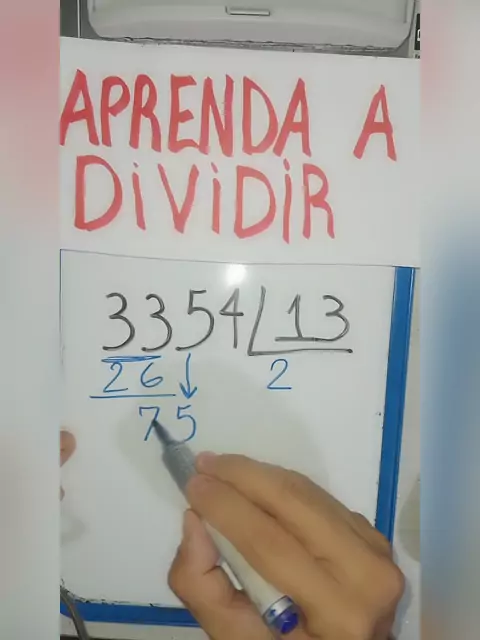 APRENDA A
DiViDiR
3354 13
26 2
75